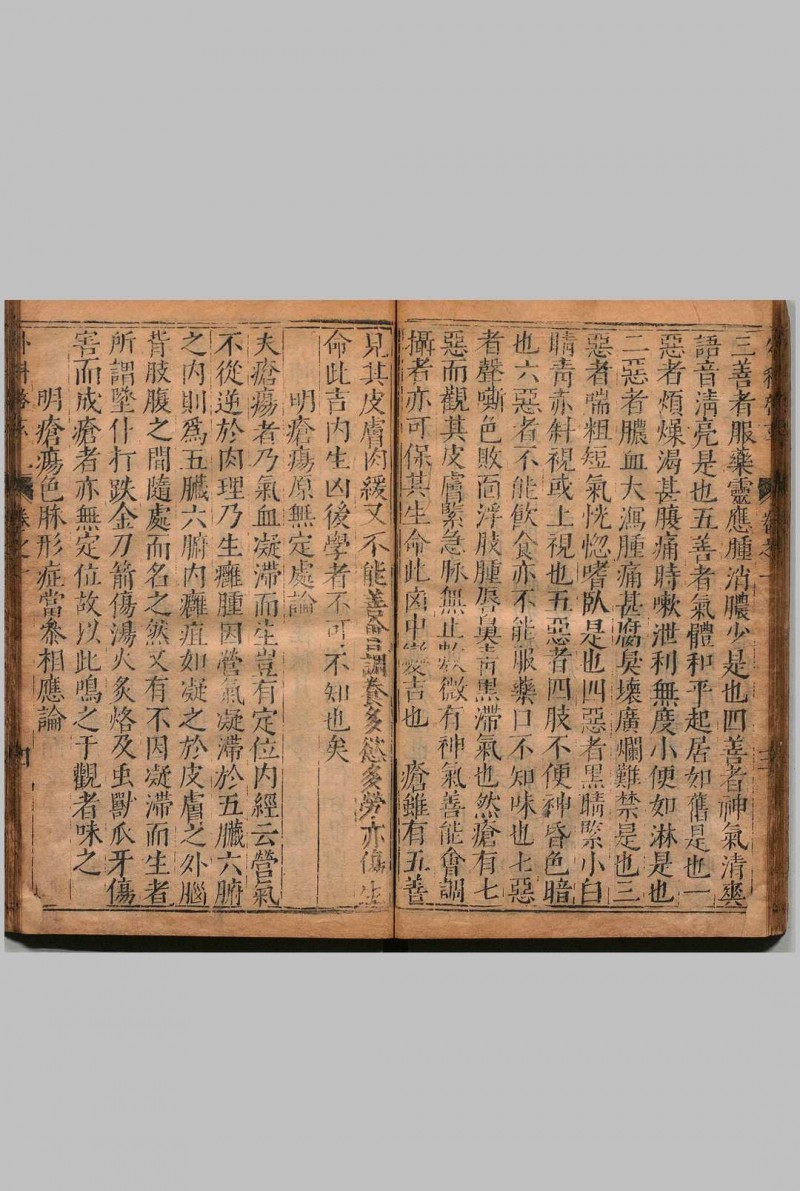 三善者服藥靈應腫消膿少是也四善者神氣清爽
語音清亮是也五善者氣體和平起居如舊是也一
惡者煩燥渴甚腹痛時嗽泄利無度小便如淋是也
二惡者膿血大瀉腫痛甚腐臭壞廣爛難禁是也三
惡者喘粗短氣恍惚嗜臥是也四惡者黑睛緊小白
睛靑亦斜視或上視也五惡者四肢不便神昏色暗
也六惡者不能飲食亦不能服藥口不知味也七惡
者聲嘶色敗面浮肢腫唇鼻青黑滯氣也然瘡有七
惡而觀其皮膚緊急脉無止數微有神氣善能會調
攝者亦可保其生命此凶中變吉也 瘡雖有五善
見其皮膚肉緩又不能善會調養多慾多勞亦傷生
命此吉內生凶後學者不可不知也矣
明瘡瘍原無定處論
夫瘡瘍者乃氣血凝滯而生豈有定位內經云營氣
不從逆於肉理乃生癰腫因營氣凝滯於五臟六腑
之內則爲五臟六腑內癰疽如凝之於皮膚之外腦
背肢腹之間隨處而名之然又有不因凝滯而生者
所謂墜仆打跌金刀箭傷湯火炙烙及虫獸爪牙傷
害而成瘡者亦無定位故以此鳴之于觀者味之
明瘡瘍色脉形症當叅相應論
卷之一
四
三